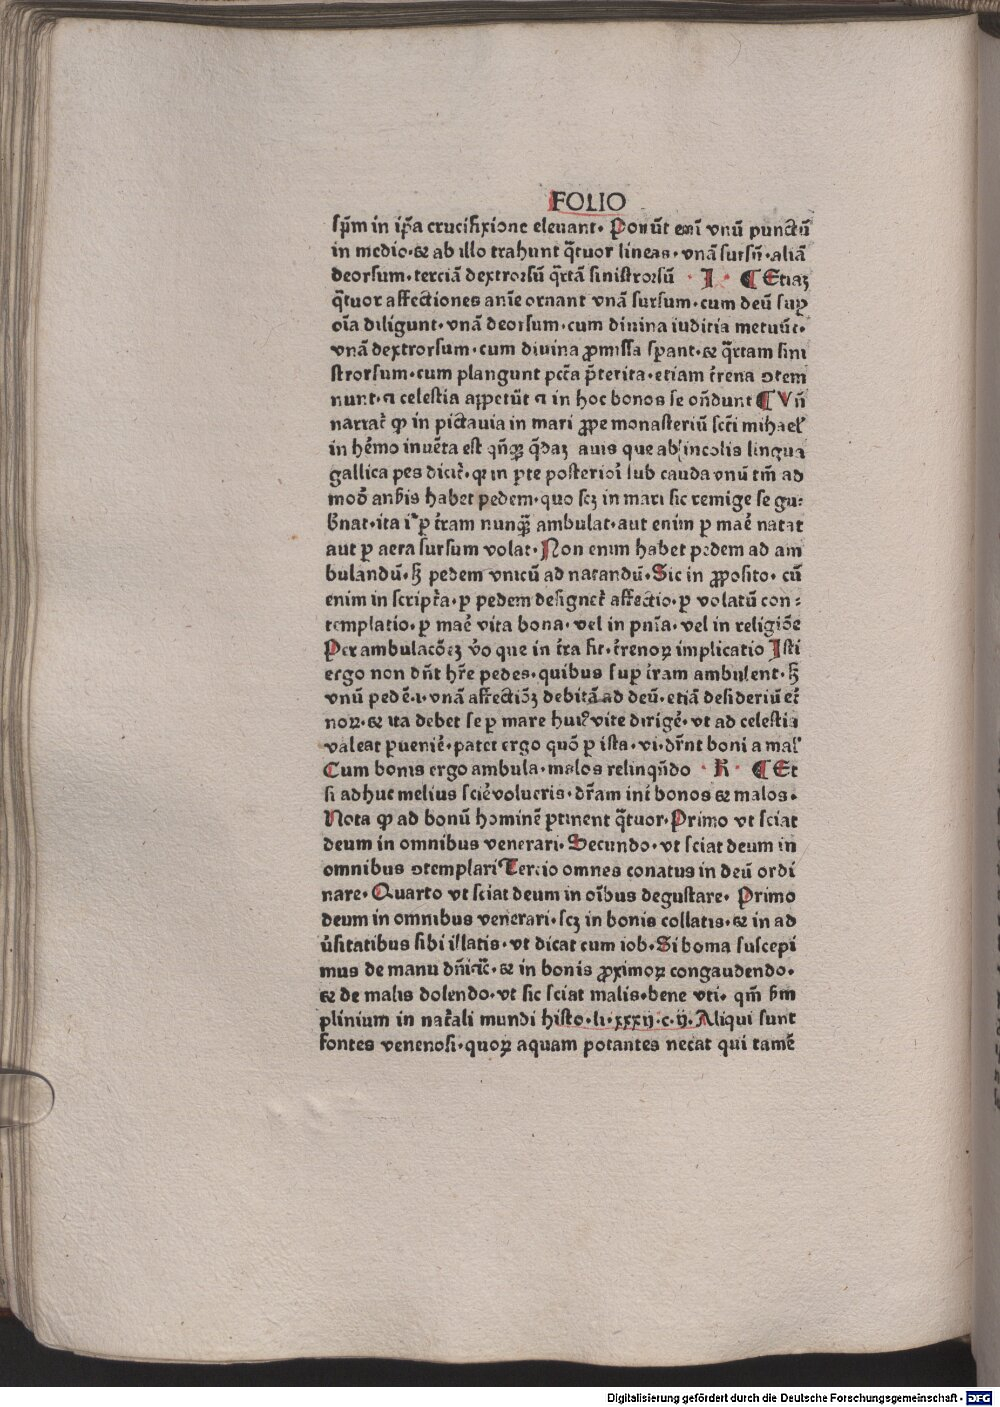 FOLIO
ſpm̄ in ip̄a crucifixione eleuant. Ponūt eni̅ vnū punctū
in medio.& ab illo trahunt q̄tuor lineas. vnā ſurſū.aliā
deorſum.terciā dextrorſū q̄rtā ſiniſtrorſū .I. ¶ Etiaʒ
q̄tuor affectiones ani̅e ornant vnā ſurſum.cum deū ſuꝑ
oi̅a diligunt.vnā deorſum.cum diuina iuditia metuūt.
vnā dextrorſum.cum diuina ꝓmiſſa ſꝑant.& q̄rtam ſini
ſtrorſum.cum plangunt pccā p̄terita.etiam t̄rena ↄtem
nunt.⁊ celeſtia appetūt ⁊ in hoc bonos ſe on̄dunt ¶ Vn̄
narrat̄ ꝙ in pictauia in mari ꝓpe monaſteriū ſcti̅ mihael'
in h̄emo inuēta eſt qn̄qꝫ q̄daʒ auis que ab incolis lingua
gallica pes dicit̄.qꝛ in ꝑte poſteriori̅ ſub cauda vnū tm̄ ad
modū anẜis habet pedem.quo ſcʒ in mari ſic remige ſe gu:
ƀnat.ita ꝙ ꝑ t̄ram nunqꝫ ambulat.aut enim ꝑ mare̅ natat
aut ꝑ aera ſurſum volat.Non enim habet pedem ad am
bulandū.ſꝫ pedem vnicū ad natandū.Sic in ꝓpoſito. cū
enim in ſcript̄a.ꝑ pedem deſignet̄ affectio.ꝑ volatū con:
templatio.ꝑ mare̅ vita bona.vel in pni̅a.vel in religiōe
Per ambulacōeʒ v̄o que in t̄ra fit.t̄renoꝝ implicatio Iſti
ergo non dn̄t hr̄e pedes.quibus ſuꝑ t̄ram ambulent.ſꝫ
vnū pedē.i.vnā affectiōʒ debitā ad deū.etiā deſideriū et̄
noꝝ.& ita debet ſe ꝑ mare huiꝰ vite dirige̅.vt ad celeſtia
valeat ꝑuenie̅.patet ergo quō ꝑ iſta.vi.dr̄nt boni a mal'
Cum bonis ergo ambula.malos relinqn̄do .K. ¶ Et
ſi adhuc melius ſcie̅ volueris.dr̄am int̄ bonos & malos.
Nota ꝙ ad bonū hominē ꝑtinent q̄tuor.Primo vt ſciat
deum in omnibus venerari.Secundo.vt ſciat deum in
omnibus ↄtemplari Tercio omnes conatus in deū ordi
nare.Quarto vt ſciat deum in oi̅bus deguſtare. Primo
deum in omnibus venerari.ſcʒ in bonis collatis.& in ad
ūſitatibus ſibi illatis.vt dicat cum iob.Si bona ſuſcepi
mus de manu dn̄i ⁊c̄.& in bonis ꝓximoꝝ congaudendo.
& de malis dolendo.vt ſic ſciat malis.bene vti. qm̄ ẜm
plinium in nat̄ali mundi hiſto.li.xxxij.c.ij.Aliqui ſunt
fontes venenoſi.quoꝝ aquam potantes necat qui tamē
Digitalisierung gefördert durch die Deutsche Forschungsgemeinschaft - DFG